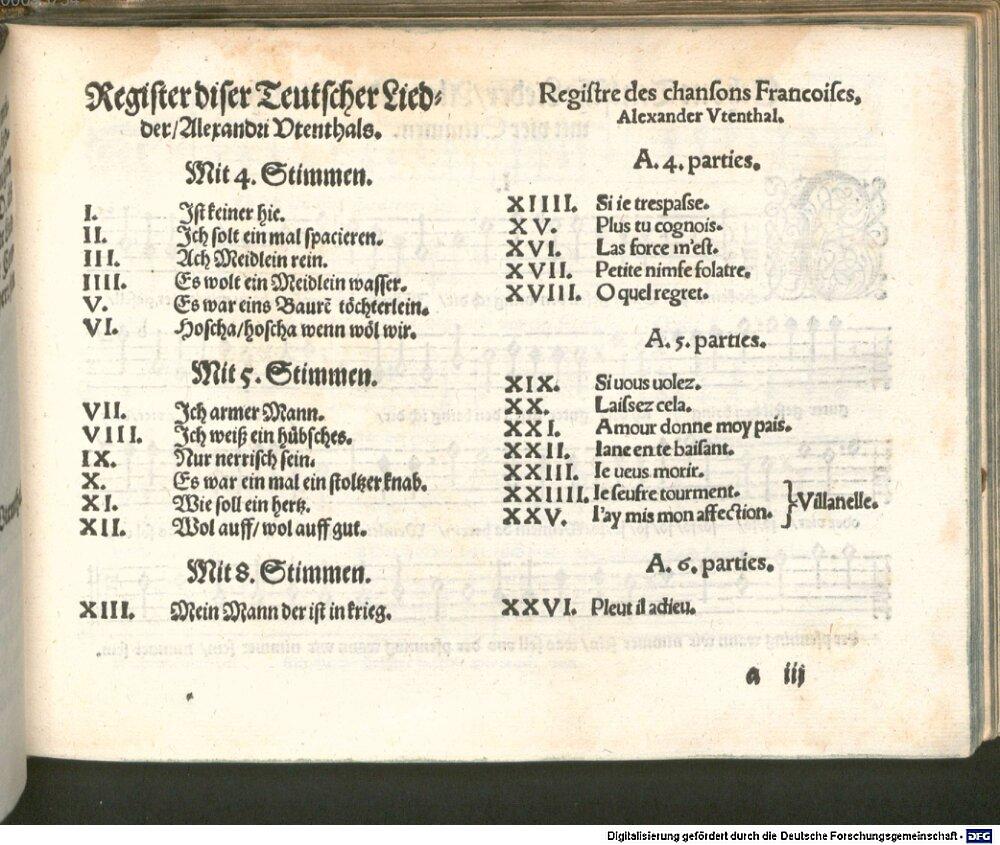 Register diser Teutscher Lied-
der/Alexandri Vtenthals.
Mit 4. Stimmen.
I. Ist keiner hie.
II. Ich solt ein mal spacieren.
III. Ach Meidlein rein.
IIII. Es wolt ein Meidlein wasser.
V. Es war eins Baurē töchterlein.
VI. Hoscha/hoscha wenn wöl wir.
Mit 5. Stimmen.
VII. Ich armer Mann.
VIII. Ich weiß ein hübsches.
IX. Nur nerrisch sein.
X. Es war ein mal ein stoltzer knab.
XI. Wie soll ein hertz.
XII. Wol auff/wol auff gut.
Mit 8. Stimmen.
XIII. Mein Mann der ist in krieg.
Registre des chansons Francoises,
Alexander Vtenthal.
A. 4. parties.
XIIII. Si ie trespasse.
XV. Plus tu cognois.
XVI. Las force m'est.
XVII. Petite nimfe folatre.
XVIII. O quel regret.
A. 5. parties.
XIX. Si uous uolez.
XX. Laissez cela.
XXI. Amour donne moy pais.
XXII. Iane en te baisant.
XXIII. Ie ueus morir.
XXIIII. Ie seufre tourment.
XXV. I'ay mis mon affection. } Villanelle.
A. 6. parties.
XXVI. Pleut il a dieu.
a iij
Digitalisierung gefördert durch die Deutsche Forschungsgemeinschaft - DFG